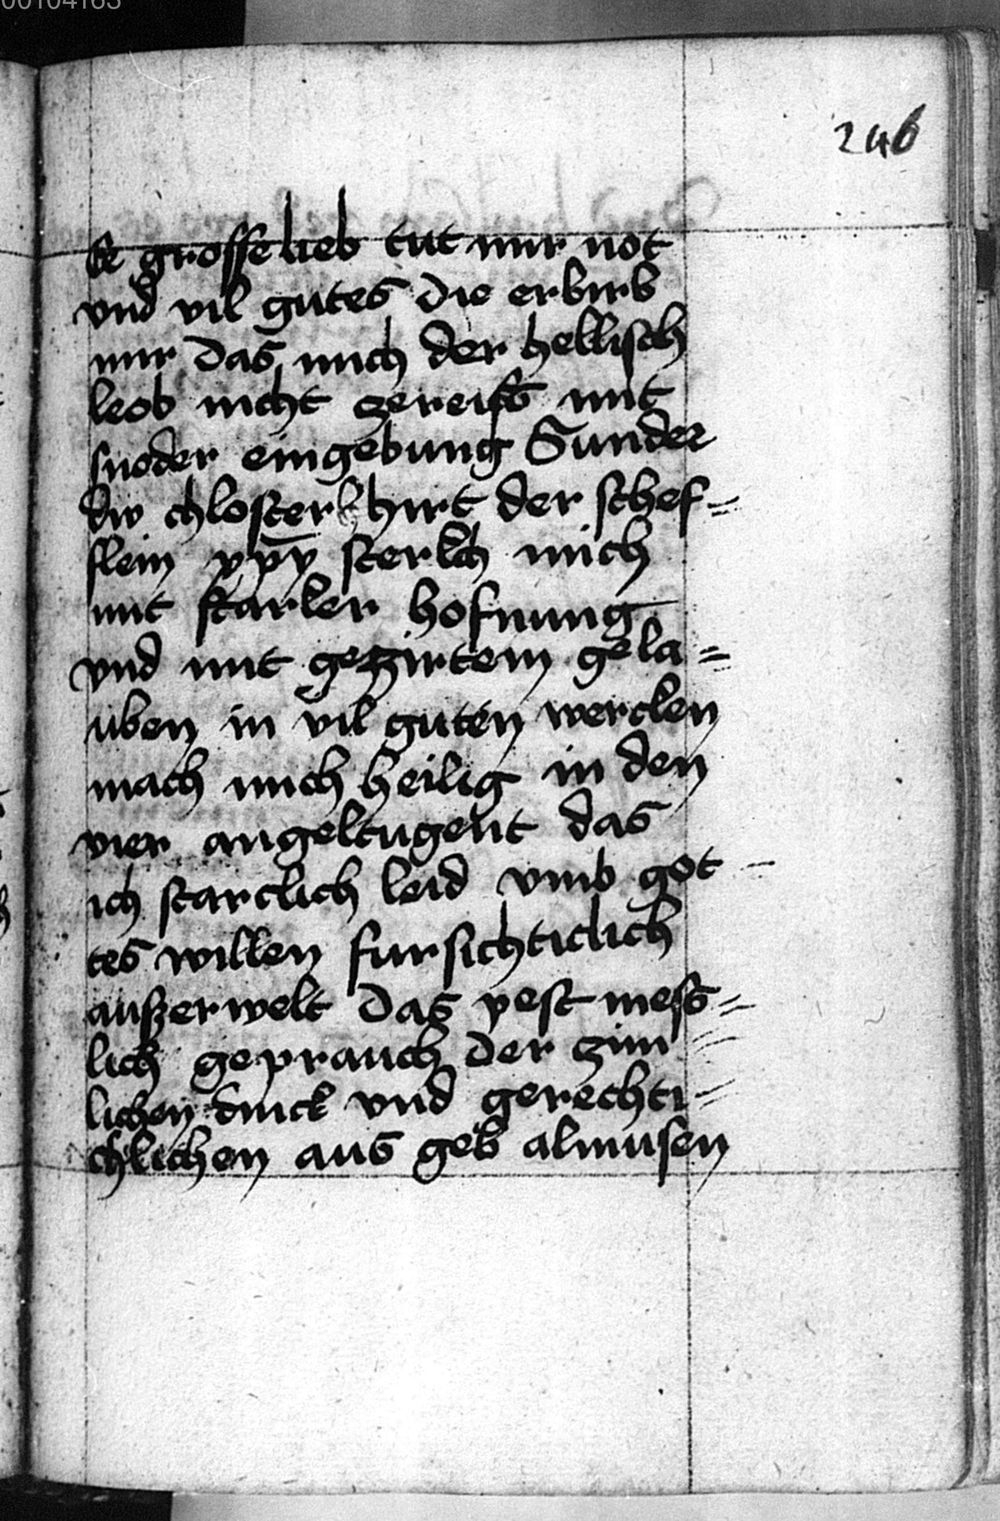 00104163
246
se grosse lieb tut mir not
vnd vil gutes die erbirb
mir das mich der hellisch
leob nicht zereiss mit
snoder eingebung Sunder
dw chloster hirt der schef=
flein sterkch mich
mit starker hofnung
vnd mit gezirtem gela=
uben in vil guten wercken
mach mich heilig in den
vier angeltugent das
ich starclich leid vmb got -
tes willen fursichticlich
auszerwelt das pest mess=
lich geprauch der zim=
lichen dinck vnd gerechti=
chlichen aus geb almusen